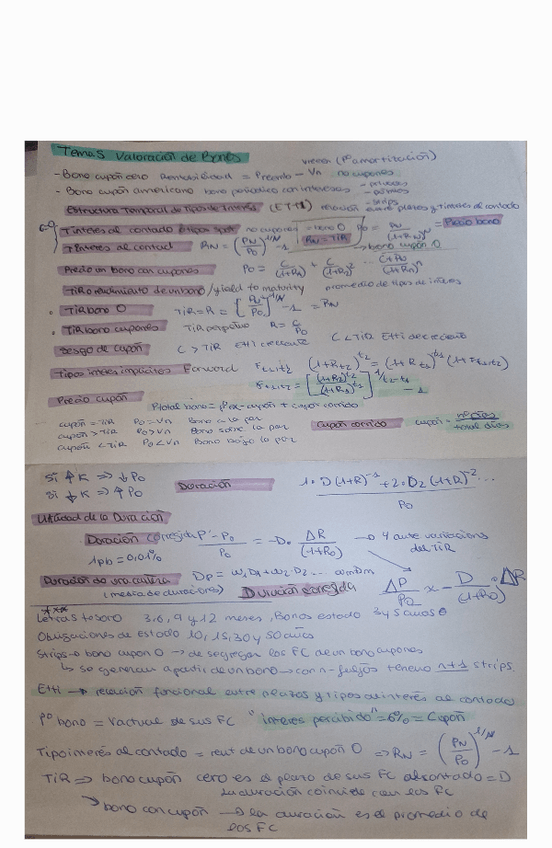 Tema 5 Valoración de Bonos
- Bono cupón cero Rentabilidad = Precio - Vn no cupones
- Bono cupón americano bono periódico con intereses
Estructura Temporal de Tipos de Interés (ETTI) relación entre plazos y t interes de contado
Tinteres de contado o tipos spot no cupones = bono 0 P0 = PN/(1+RN)^N = Precio bono
RN = TiR
Tinteres de contad RN = (PN/P0)^1/N - 1 → bono cupón 0
Precio un bono con cupones P0 = C/(1+R1) + C/(1+R2)² ... C+PN/(1+RN)^N
TiR o rendimiento de un bono / yield to maturity promedio de tipos de interes
• TiR bono 0 TiR = R = [PN/P0]^1/N - 1 = RN
• TiR bono cupones TiR perpetuo R = C/P0
Sesgo de cupón C > TiR Etti creciente C < TiR Etti decreciente
Tipos interes implicitos Forward Ft1,t2 (1+Rt2)^t2 = (1+Rt1)^t1 (1+Ft1,t2)
Ft1,t2 = [(1+R2)^t2/(1+R1)^t1]^1/t2-t1 - 1
Precio cupón Ptotal bono = Pex-cupón + cupón corrido
cupón = TiR P0 = Vn Bono a la par
Cupón corrido cupón · nº días/total días
cupón > TiR P0 > Vn Bono sobre la par
cupón < TiR P0 < Vn Bono bajo la par
Si ↑ K => ↓ P0
Si ↓ K => ↑ P0
Duración 1·D(1+R)^-1 + 2·D2(1+R)^-2 .../P0
Utilidad de la Duración
Duración corregida P' - P0/P0 = -D · ΔR/(1+R0) → ante variaciones del TiR
1pb = 0,01%
Duración de una cartera Dp = w1 D1 + w2 · D2 ... wm Dm
(media de duraciones) Duración corregida ΔP/P0 x - D/(1+R0) · ΔR
Letras tesoro 3, 6, 9 y 12 meses, Bonos estado 3 y 5 años
Obligaciones de estado 10, 15, 30 y 50 años
Strips → bono cupón 0 → de segregar los FC de un bono cupones
↳ se generan a partir de un bono → con n-flujos tenemo n+1 strips.
Etti → relación funcional entre plazos y tipos de interés al contado
Pº bono = Vactual de sus FC "interes percibido" = 6% = Cupón
Tipo interés al contado = rent de un bono cupón 0 => RN = (PN/P0)^1/N - 1
TiR => bono cupón cero es el plazo de sus FC al contado = D
la duración coincide con los FC
↳ bono con cupón → la duración es el promedio de
los FC